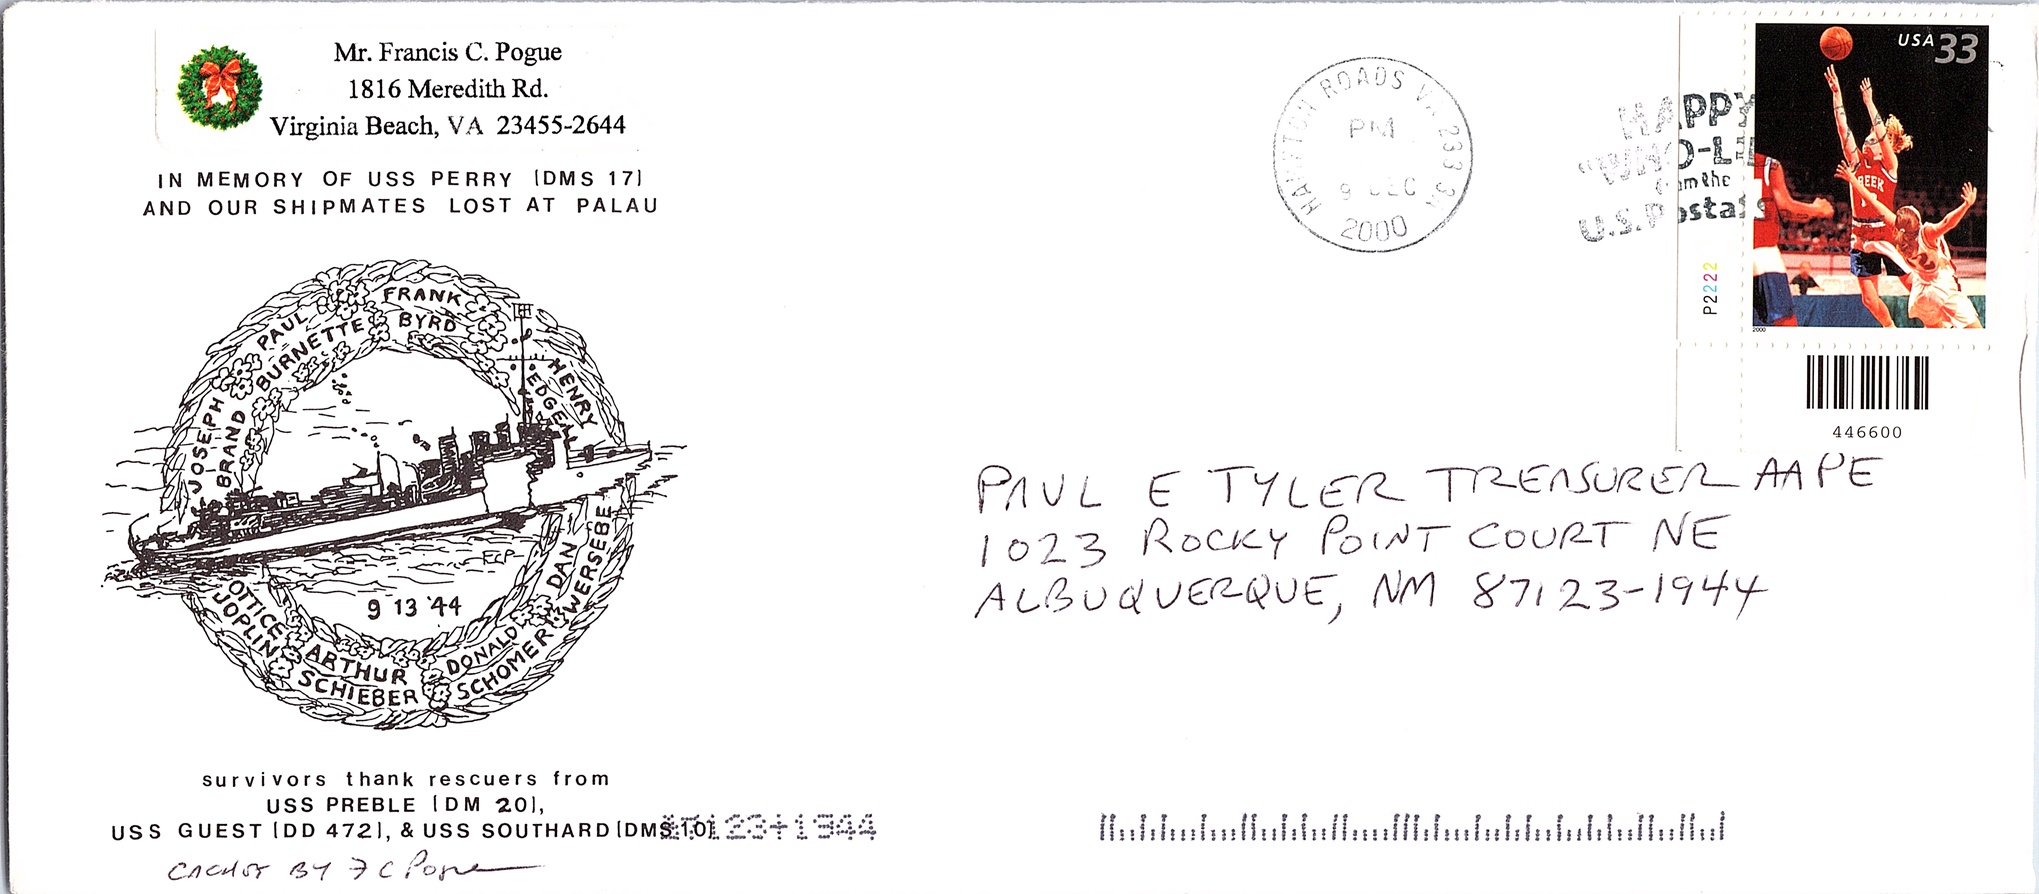 Mr. Francis C. Pogue
1816 Meredith Rd.
Virginia Beach, VA 23455-2644
IN MEMORY OF USS PERRY (DMS 17)
AND OUR SHIPMATES LOST AT PALAU
JOSEPH BRAND
PAUL BURNETTE
FRANK BYRD
HENRY EDGE
OTTICE JOPLIN
ARTHUR SCHIEBER
DONALD SCHOMER
DAN WERSEBE
FCP
9 13 '44
survivors thank rescuers from
USS PREBLE (DM 20),
USS GUEST (DD 472), & USS SOUTHARD (DMS 10)
87123+1944
CACHET BY F C Pogue
HAMPTON ROADS VA 233 3A
PM
9 DEC
2000
HAPPY
"WHO-LI
from the
U.S. Postal S
USA 33
REEK
2000
P2222
446600
PAUL E TYLER TREASURER AAPE
1023 ROCKY POINT COURT NE
ALBUQUERQUE, NM 87123-1944